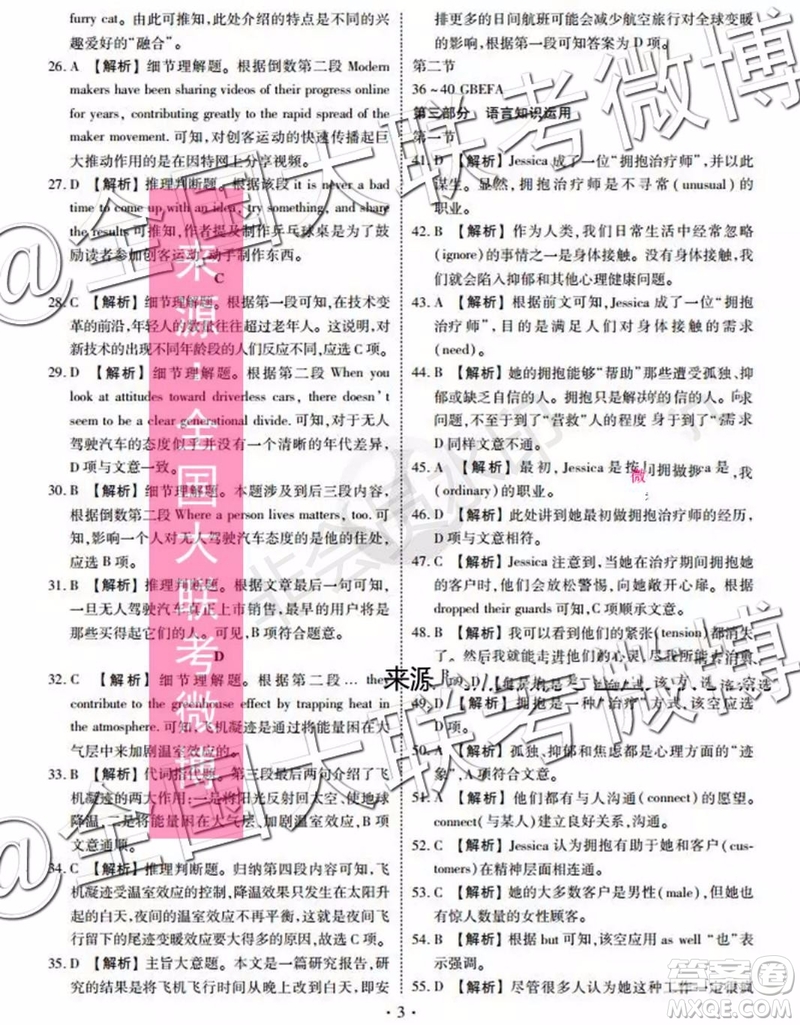 furry cat. 可知，此处介绍的特点是不同兴
趣爱好的“融合”。
26. A 【解析】细节理解题。根据倒数第二段 Modern
makers have been sharing videos of their progress online
for years, contributing greatly to the rapid spread of the
maker movement. 可知，对创客运动的快速传播起巨
大推动作用的是在因特网上分享视频。
27. D 【解析】推理判断题。根据该段 it is never a bad
time to come up with an idea, try something, and share
the results 可知，作者提及制作乒乓球桌是为了鼓
励读者参加创客运动，动手制作东西。
C
28. C 【解析】细节理解题。根据第一段可知，在技术变
革的前沿，年轻人的数量往往超过老年人。这说明，对
新技术的出现不同年龄段的人们反应不同，应选 C 项。
29. D 【解析】细节理解题。根据第二段 When you
look at attitudes toward driverless cars, there doesn't
seem to be a clear generational divide. 可知，对于无人
驾驶汽车的态度似乎并没有一个清晰的年代差异，
D 项与文意一致。
30. B 【解析】细节理解题。本题涉及到最后三段。根
据倒数第二段 Where a person lives matters, too. 可
知，影响一个人对无人驾驶汽车态度的是他的住处，
应选 B 项。
31. B 【解析】推理判断题。根据文章最后一句可知，
一旦无人驾驶汽车真正上市销售，最早的用户将是
那些买得起它们的人。可见，B 项符合题意。
D
32. C 【解析】细节理解题。根据第二段 ... they
contribute to the greenhouse effect by trapping heat in
the atmosphere. 可知，飞机凝迹是通过将能量困在大
气层中来加剧温室效应的。
33. B 【解析】代词指代题。第三段最后两句介绍了飞
机凝迹的两大作用：一是将阳光反射回太空，使地球
降温，二是将能量困在大气层。可见，B 项与文意
文意通顺。
34. C 【解析】推理判断题。归纳第四段内容可知，飞
机凝迹受温室效应的控制，降温效果只出现在太阳升
起的白天，夜间的温室效应不再平衡，这就使夜间飞
行留下的尾迹变暖效应大得多的原因，故选 C 项。
35. D 【解析】主旨大意题。本文是一篇研究报告，研
究表明，将飞机飞行时间从晚上改到白天，即安
排更多的日间航班可能会减少航空旅行对全球变暖
的影响，根据第一段可知答案为 D 项。
第二节
36～40 GBEFA
第三部分 语言知识运用
第一节
41. D 【解析】Jessica 成了一位“拥抱治疗师”，并以此
谋生。显然，拥抱治疗师是不寻常（unusual）的
职业。
42. B 【解析】作为人类，我们日常生活中经常忽略
（ignore）的事情之一是身体接触。没有身体接触，我
们就会陷入抑郁和其他心理健康问题。
43. A 【解析】根据前文可知，Jessica 成了一位“拥抱
治疗师”，目的是满足人们对身体接触的需求
（need）。
44. B 【解析】她的拥抱能够“帮助”那些遭受孤独、抑
郁和压力的人，
求问题，不至于到了“营救”人的程度
D 同样文意不通。
45. A 【解析】最初，Jessica
（ordinary）的职业。
46. D 【解析】此处讲到她最初做拥抱治疗师的经历，
D 项与文意相符。
47. C 【解析】Jessica 注意到，当她在治疗期间拥抱她
的客户时，他们会放松警惕，向她敞开心扉。根据
dropped their guards 可知，C 项正确。
48. B 【解析】我可以看到他们的紧张（tension）都消失
了。然后我们就能够
来源
49. D 【解析】拥抱是一种“治疗”方式，该空应选
D 项。
50. A 【解析】孤独、抑郁和焦虑都是心理方面的“迹
象”，A 项符合文意。
51. A 【解析】他们都有与人沟通（connect）的愿望。
connect（与某人）建立良好关系，沟通。
52. B 【解析】Jessica 认为拥抱有助于她和客户（cus-
tomers）在精神层面连通。
53. C 【解析】她的大多数客户是男性（male），但她也
有惊人数量的女性顾客。
54. B 【解析】根据 but 可知，该空应用 as well “也”表
示强调。
55. D 【解析】尽管很多人认为她这种工作一定很疯
· 3 ·
来源：全国大联考微博
@全国大联考微博
@全国大联考微博
非会员水印
答案圈
MXQE.COM